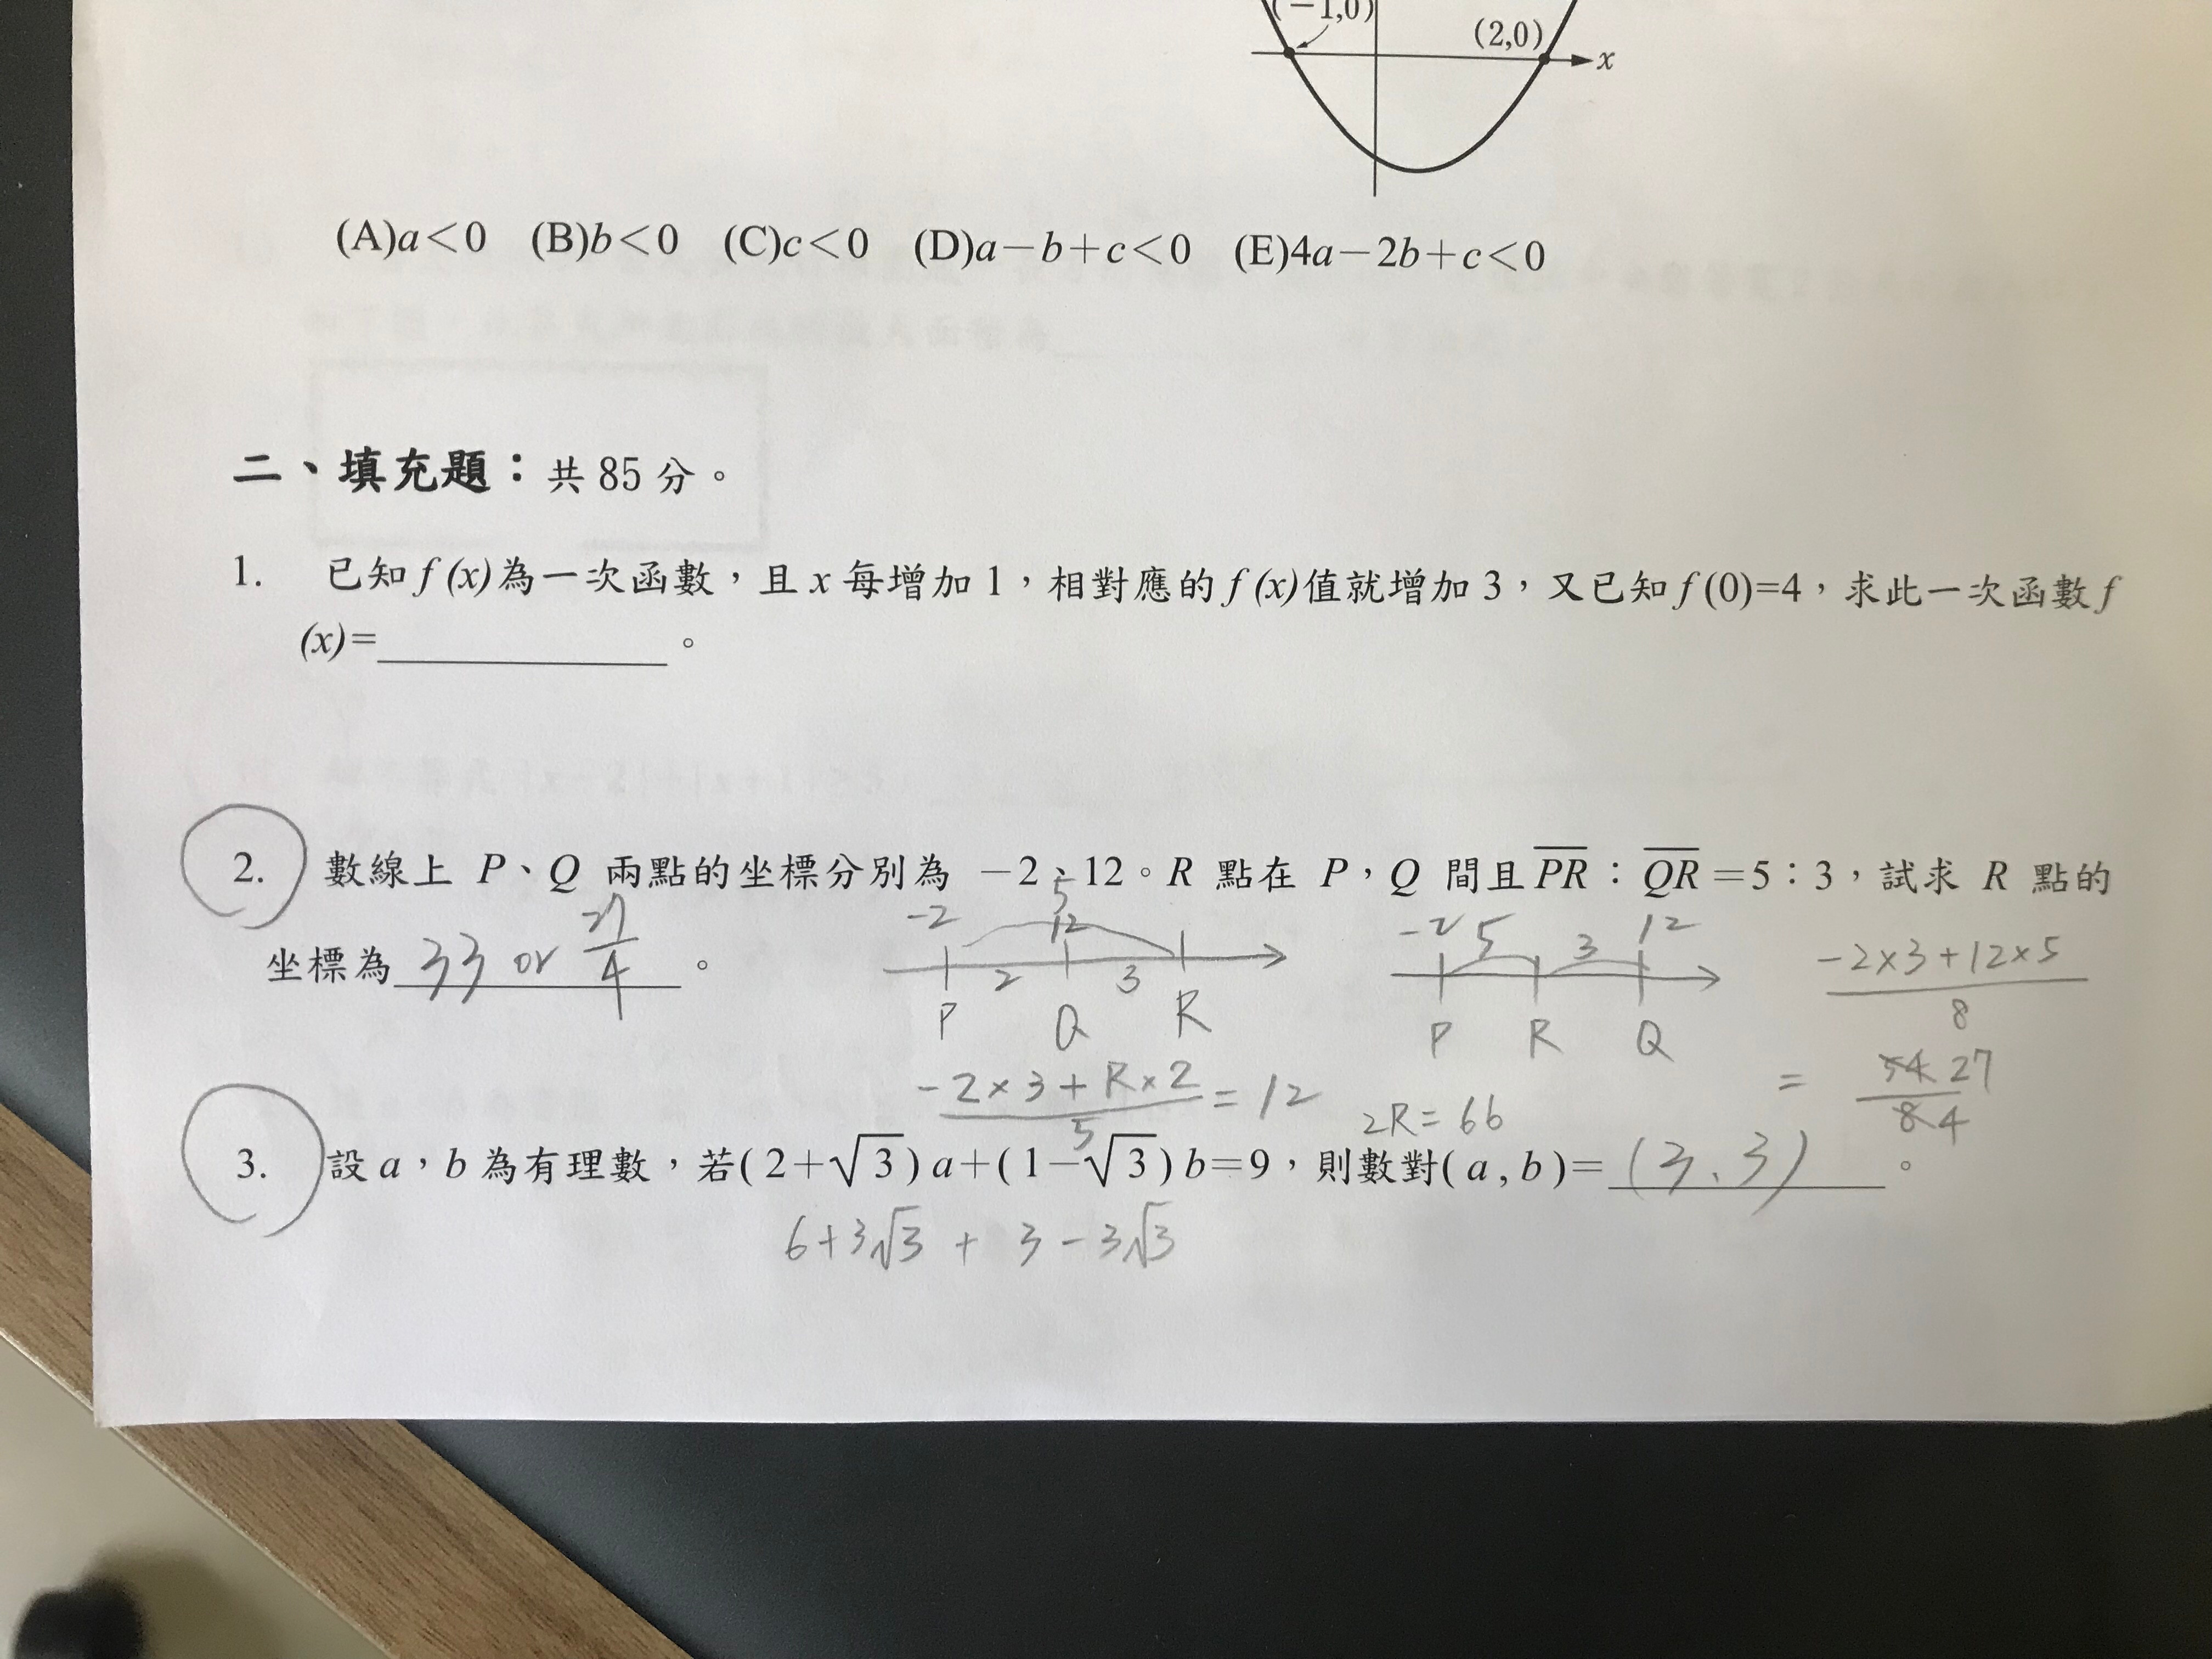 (−1,0)
(2,0)
x
(A)a<0 (B)b<0 (C)c<0 (D)a−b+c<0 (E)4a−2b+c<0
二、填充題：共 85 分。
1. 已知 f (x)為一次函數，且 x 每增加 1，相對應的 f (x)值就增加 3，又已知 f (0)=4，求此一次函數 f
(x)=____________。
2. 數線上 P、Q 兩點的坐標分別為 −2、12。R 點在 P，Q 間且 PR：QR=5：3，試求 R 點的
坐標為 33 or 27/4 。
-2 5 12
2 3
P Q R
-2 5 3 12
P R Q
-2×3+12×5
8
= 54 27
8 4
-2×3+R×2 = 12
5
2R=66
3. 設 a，b 為有理數，若( 2+√3 ) a+( 1−√3 ) b=9，則數對( a , b )= (3、3) 。
6+3√3 + 3-3√3